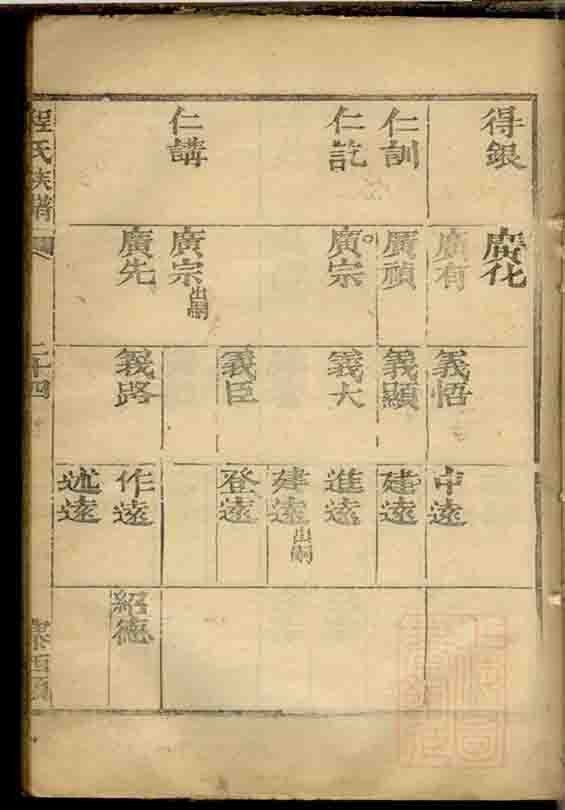 得銀
仁訓
仁訖
仁講
廣化
廣有
廣禎
廣宗
廣宗出嗣
廣先
義悟
義顯
義大
義臣
義路
中遠
建遠
進遠
建遠出嗣
登遠
作遠
述遠
紹德
程氏族譜
二十四